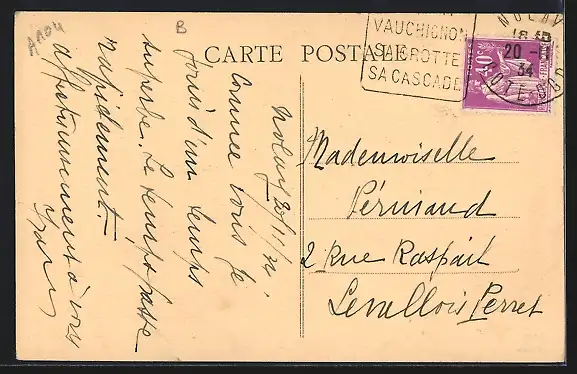 A104
B
CARTE POSTALE
VAUCHIGNON
SA GROTTE
SA CASCADE
NOLAY
18 45
20 - 1
34
COTE-D'OR
Nolay 20/1/34.
Comme vous je
jouis d'un temps
superbe. Le temps passe
rapidement.
affectueusement à vous
Mademoiselle
Perniaud
2 Rue Raspail
Levallois Perret